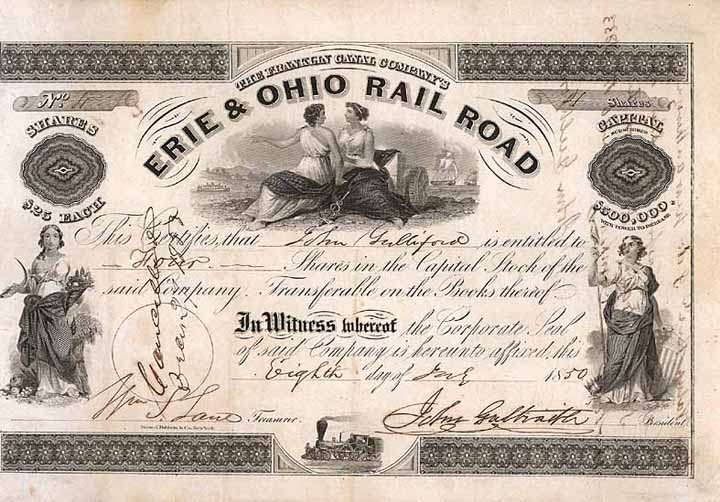 THE FRANKLIN CANAL COMPANY'S
ERIE & OHIO RAIL ROAD
No. 4
4 Shares
SHARES
$25 EACH
CAPITAL
$500,000.
WITH POWER TO INCREASE
This Certifies, that John Gulliford is entitled to
Four Shares in the Capital Stock of the
said Company. Transferable on the Books thereof
In Witness whereof the Corporate Seal
of said Company is hereunto affixed, this
Eighth day of July 1850
Wm S. Lane Treasurer.
John Galbraith President
Cancelled